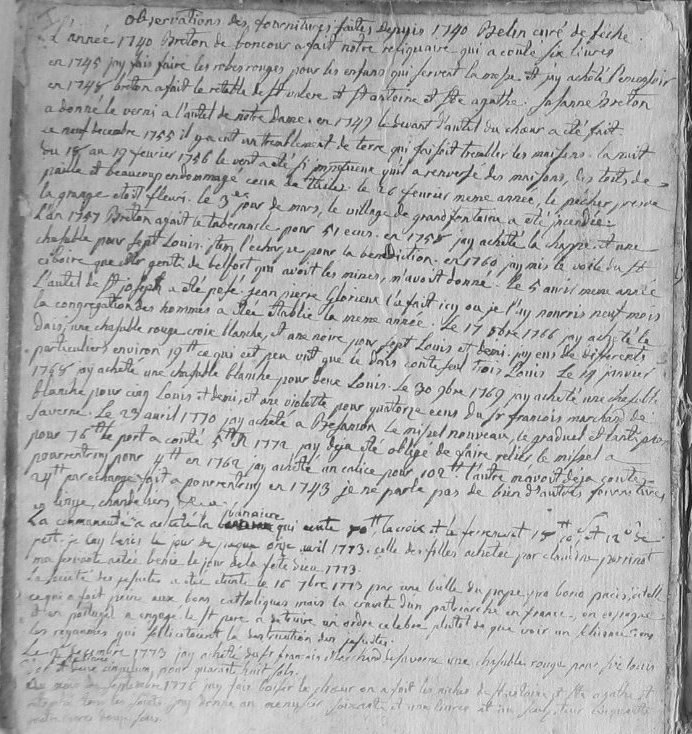 Observations des fournitures faites depuis 1740 Belin curé de fêche
L'année 1740 Breton de boncour a fait notre reliquaire qui a couté six livres
en 1745 jay fais faire les robes rouges pour les enfans qui servent la messe et jay acheté l'encensoir
en 1748 breton a fait le retable de st valere et st antoine et ste agathe. Josanne Breton
a donné le verni a l'autel de notre dame. en 1749 le devant d'autel du chœur a été fait
ce neuf decembre 1755 il y a eut un tremblement de terre qui faisoit trembler les maisons. la nuit
du 18 au 19 fevrier 1756 le vent a été si impetueux qu'il a renversé des maisons, des toits de
paille et beaucoup endommagé ceux de thiles. le 26 fevrier meme année, le pécher, pres de
la grange etoit fleuri. le 3e jour de mars, le village de grandfontaine a été incendié
L'an 1757 Breton a fait le tabernacle pour 51 ecus. en 1758 jay acheté la chappe et une
chasuble pour sept Louis. item l'echarpe pour la benediction. en 1760 jay mis le voile du st
ciboire que de belfort qui avoit les mines, m'avoit donné. Le 5 avril meme année
L'autel de st joseph a été posé. jean pierre Glorieux l'a fait icy ou je l'ay nourris neuf mois
la congregation des hommes a été établie la meme année. Le 17 8bre 1766 jay acheté le
dais, une chasuble rouge croix blanche, et une noire pour sept Louis et demi. jay eus de differents
particuliers environ 19tt ce qui est peu vut que le dais coute seul trois Louis. Le 14 janvier
1768 jay acheté une chasuble blanche pour deux Louis. Le 30 9bre 1769 jay acheté une chasuble
blanche pour cinq Louis et demi, et une violette pour quatorze ecus du sr francois marchand de
saverne. Le 23 avril 1770 jay acheté a Besançon le missel nouveau, le graduel et l'antiphon
pour 76tt le port a conté 5tt en 1772 jay deja eté obligé de faire relier le missel a
pourrentruy pour 4tt en 1762 jay acheté un calice pour 102tt l'autre m'avoit déja conté
24tt par echange fait a pourrentruy en 1743 je ne parle pas de bien d'autres fournitures
en linge, chandeliers &c.
La communauté a acheté la banniere qui coute la croix et le ferrement
petit. je lay benis le jour de onze avril 1773. celle des filles achetée par claudine perrinot
ma servante a été benie le jour de la fête dieu 1773.
La société des jesuites a été éteinte le 16 7bre 1773 par une bulle du pape pro bono pacis, icelle
ce qui a fait peine aux bons catholiques mais la crainte d'un patriarche en france, en espagne
et en portugal a engagé le st pere a detruire un ordre celebre plutot de que voir un schisme dans
les royaumes qui sollicitoient la destruction des jesuites.
Le decembre 1773 jay acheté du sr francois marchand de saverne une chasuble rouge pour six louis
et deux cingulum, pour quarante huit sols.
au mois de septembre 1775 jay fais boiser le chœur on a fait les niches de st antoine et ste agathe et
tous les saints jay donné au menusier soixante et une livres et au sculpteur cinquante
livres douze sous.